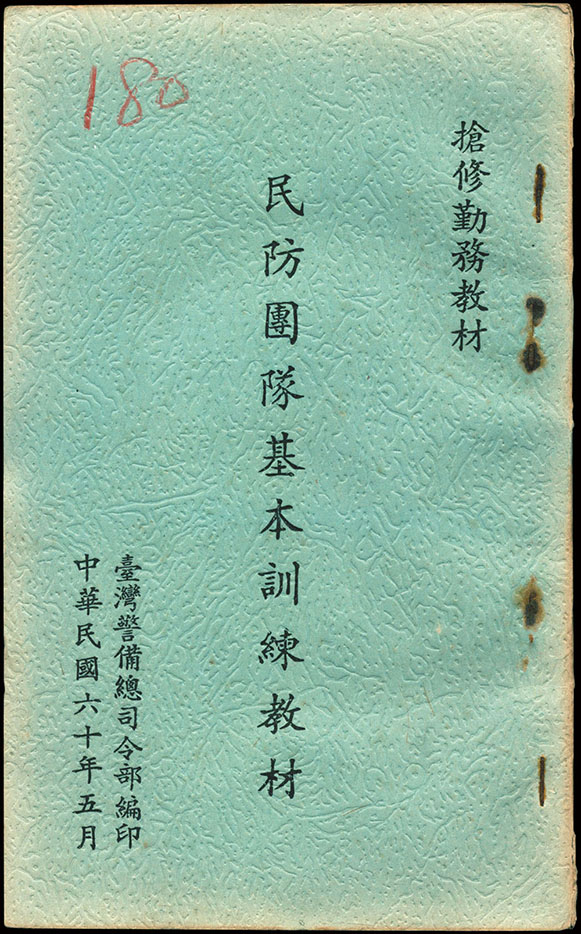 搶修勤務教材
民防團隊基本訓練教材
臺灣警備總司令部編印
中華民國六十年五月
180